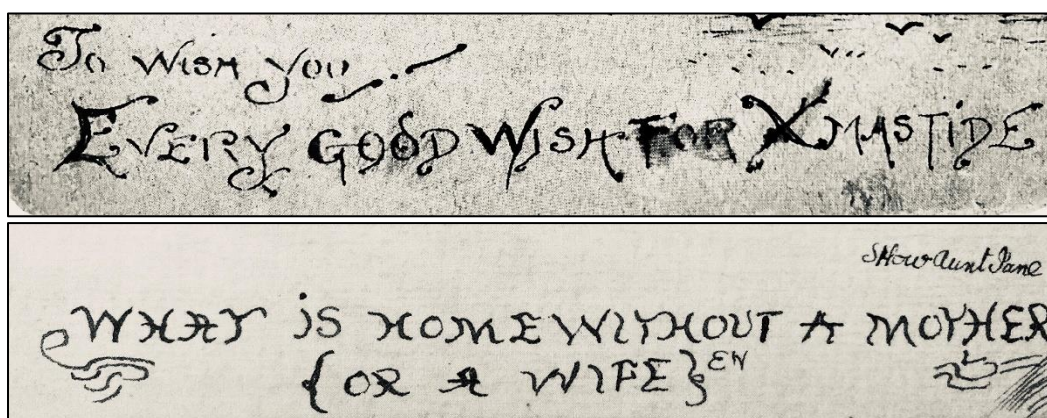 To wish you
EVERY GOOD WISH FOR XMASTIDE
Show Aunt Jane
WHAT iS HOME WITHOUT A MOTHER
{OR A WIFE}EN